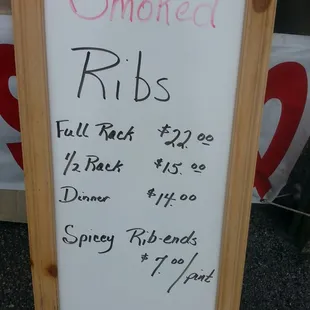 Smoked
Ribs
Full Rack $22.00
1/2 Rack $15.00
Dinner $14.00
Spicey Rib-ends
$7.00/pint